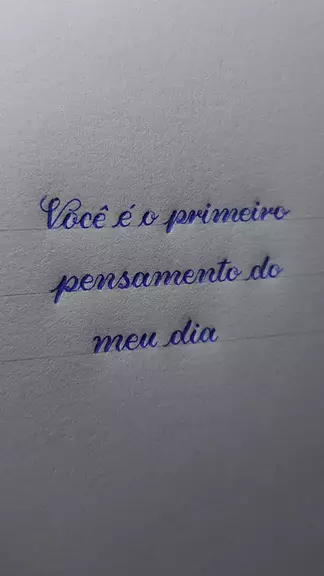 Você é o primeiro
pensamento do
meu dia